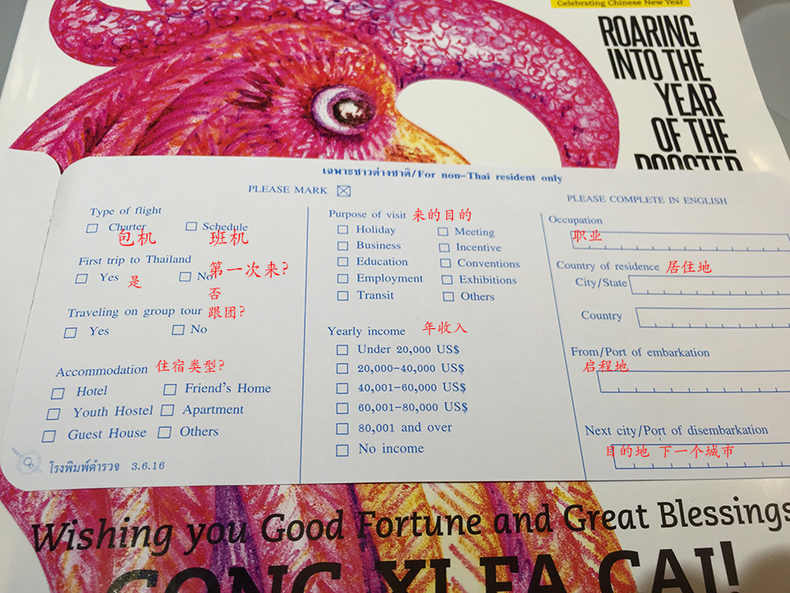 Celebrating Chinese New Year
ROARING
INTO THE
YEAR
OF THE
ROOSTER
เฉพาะชาวต่างชาติ/For non-Thai resident only
PLEASE MARK ☒
PLEASE COMPLETE IN ENGLISH
Type of flight
Charter Schedule
包机 班机
First trip to Thailand
第一次来?
Yes 是 No
否
Traveling on group tour 跟团?
Yes No
Accommodation 住宿类型?
Hotel Friend's Home
Youth Hostel Apartment
Guest House Others
โรงพิมพ์ตำรวจ 3.6.16
Purpose of visit 来的目的
Holiday Meeting
Business Incentive
Education Conventions
Employment Exhibitions
Transit Others
Yearly income 年收入
Under 20,000 US$
20,000-40,000 US$
40,001-60,000 US$
60,001-80,000 US$
80,001 and over
No income
Occupation
职业
Country of residence 居住地
City/State
Country
From/Port of embarkation
启程地
Next city/Port of disembarkation
目的地 下一个城市
Wishing you Good Fortune and Great Blessings
GONG XI FA CAI!